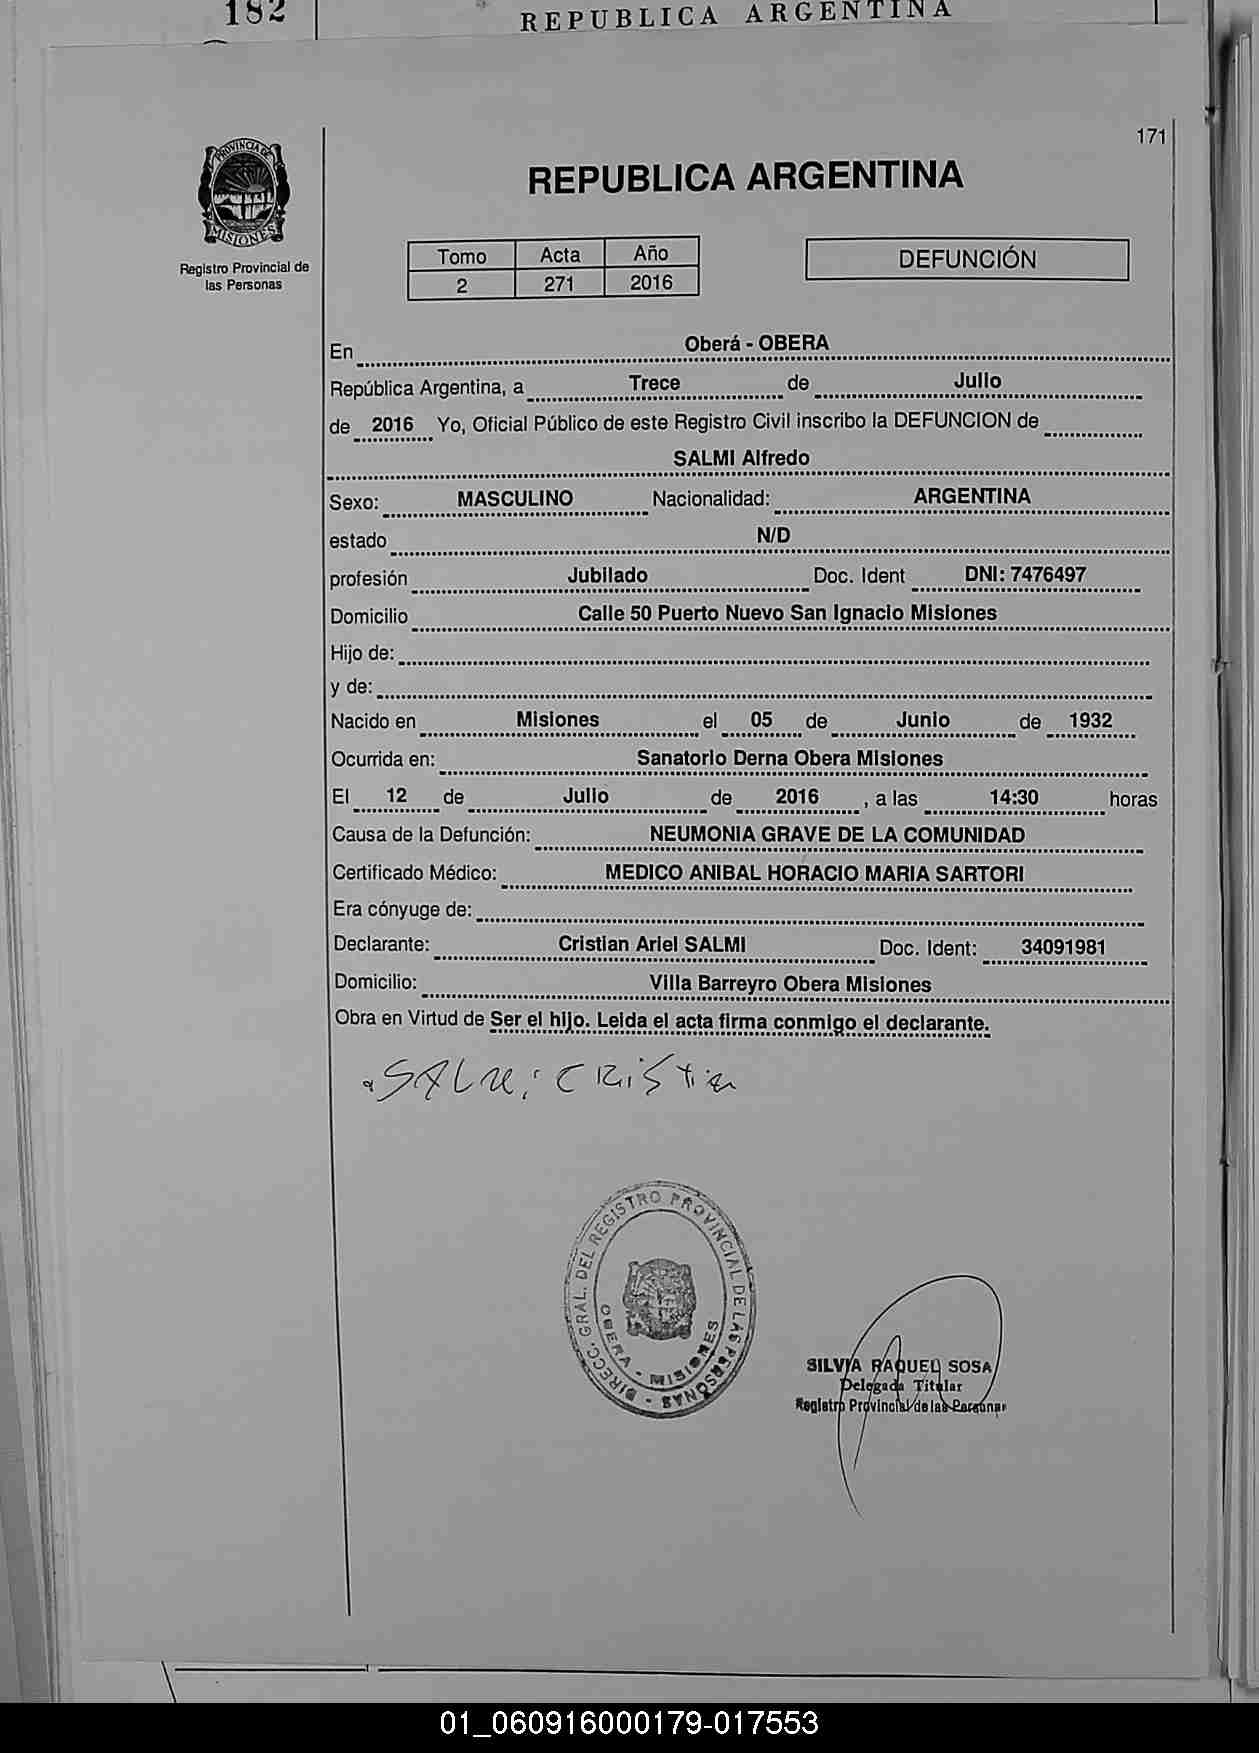 182
REPUBLICA ARGENTINA
171
PROVINCIA DE
MISIONES
Registro Provincial de
las Personas
REPUBLICA ARGENTINA
Tomo Acta Año
2 271 2016
DEFUNCIÓN
En Oberá - OBERA
República Argentina, a Trece de Julio
de 2016 Yo, Oficial Público de este Registro Civil inscribo la DEFUNCION de
SALMI Alfredo
Sexo: MASCULINO Nacionalidad: ARGENTINA
estado N/D
profesión Jubilado Doc. Ident DNI: 7476497
Domicilio Calle 50 Puerto Nuevo San Ignacio Misiones
Hijo de:
y de:
Nacido en Misiones el 05 de Junio de 1932
Ocurrida en: Sanatorio Derna Obera Misiones
El 12 de Julio de 2016 , a las 14:30 horas
Causa de la Defunción: NEUMONIA GRAVE DE LA COMUNIDAD
Certificado Médico: MEDICO ANIBAL HORACIO MARIA SARTORI
Era cónyuge de:
Declarante: Cristian Ariel SALMI Doc. Ident: 34091981
Domicilio: Villa Barreyro Obera Misiones
Obra en Virtud de Ser el hijo. Leida el acta firma conmigo el declarante.
SALMi CRiStian
DIRECC. GRAL. DEL REGISTRO PROVINCIAL DE LAS PERSONAS -
OBERA - MISIONES
SILVIA RAQUEL SOSA
Delegada Titular
Registro Provincial de las Personas
01_060916000179-017553